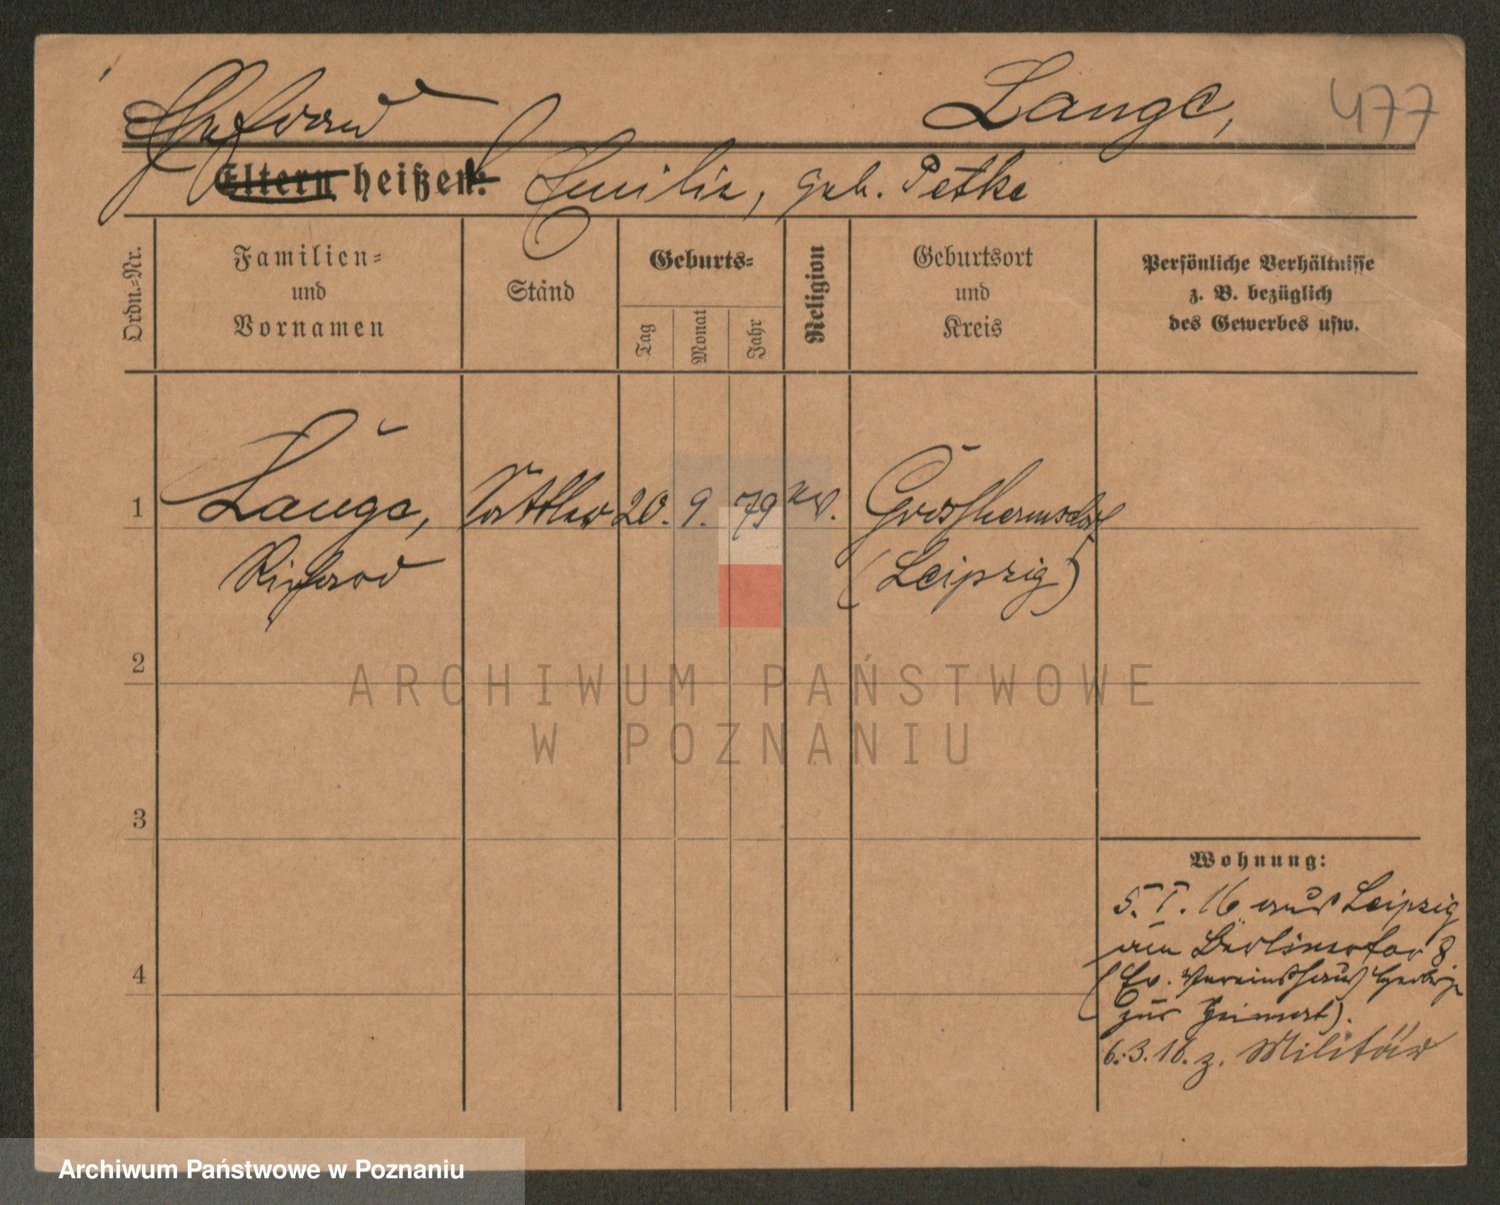 Ehefrau
Lange,
477
Eltern heißen: Emilie, geb. Petke
Ordn.-Nr.
Familien-
und
Vornamen
Stand
Geburts-
Tag
Monat
Jahr
Religion
Geburtsort
und
Kreis
Persönliche Verhältnisse
z. B. bezüglich
des Gewerbes usw.
1
Lange,
Richard
Sattler
20. 9. 79
ev.
Grosshermsdorf
(Leipzig)
2
3
4
Wohnung:
5. I. 16 aus Leipzig
am Berlinertor 8
(Ev. Vereinshaus Herberge
zur Heimat).
6.3.16. z. Militär
ARCHIWUM PAŃSTWOWE
W POZNANIU
Archiwum Państwowe w Poznaniu